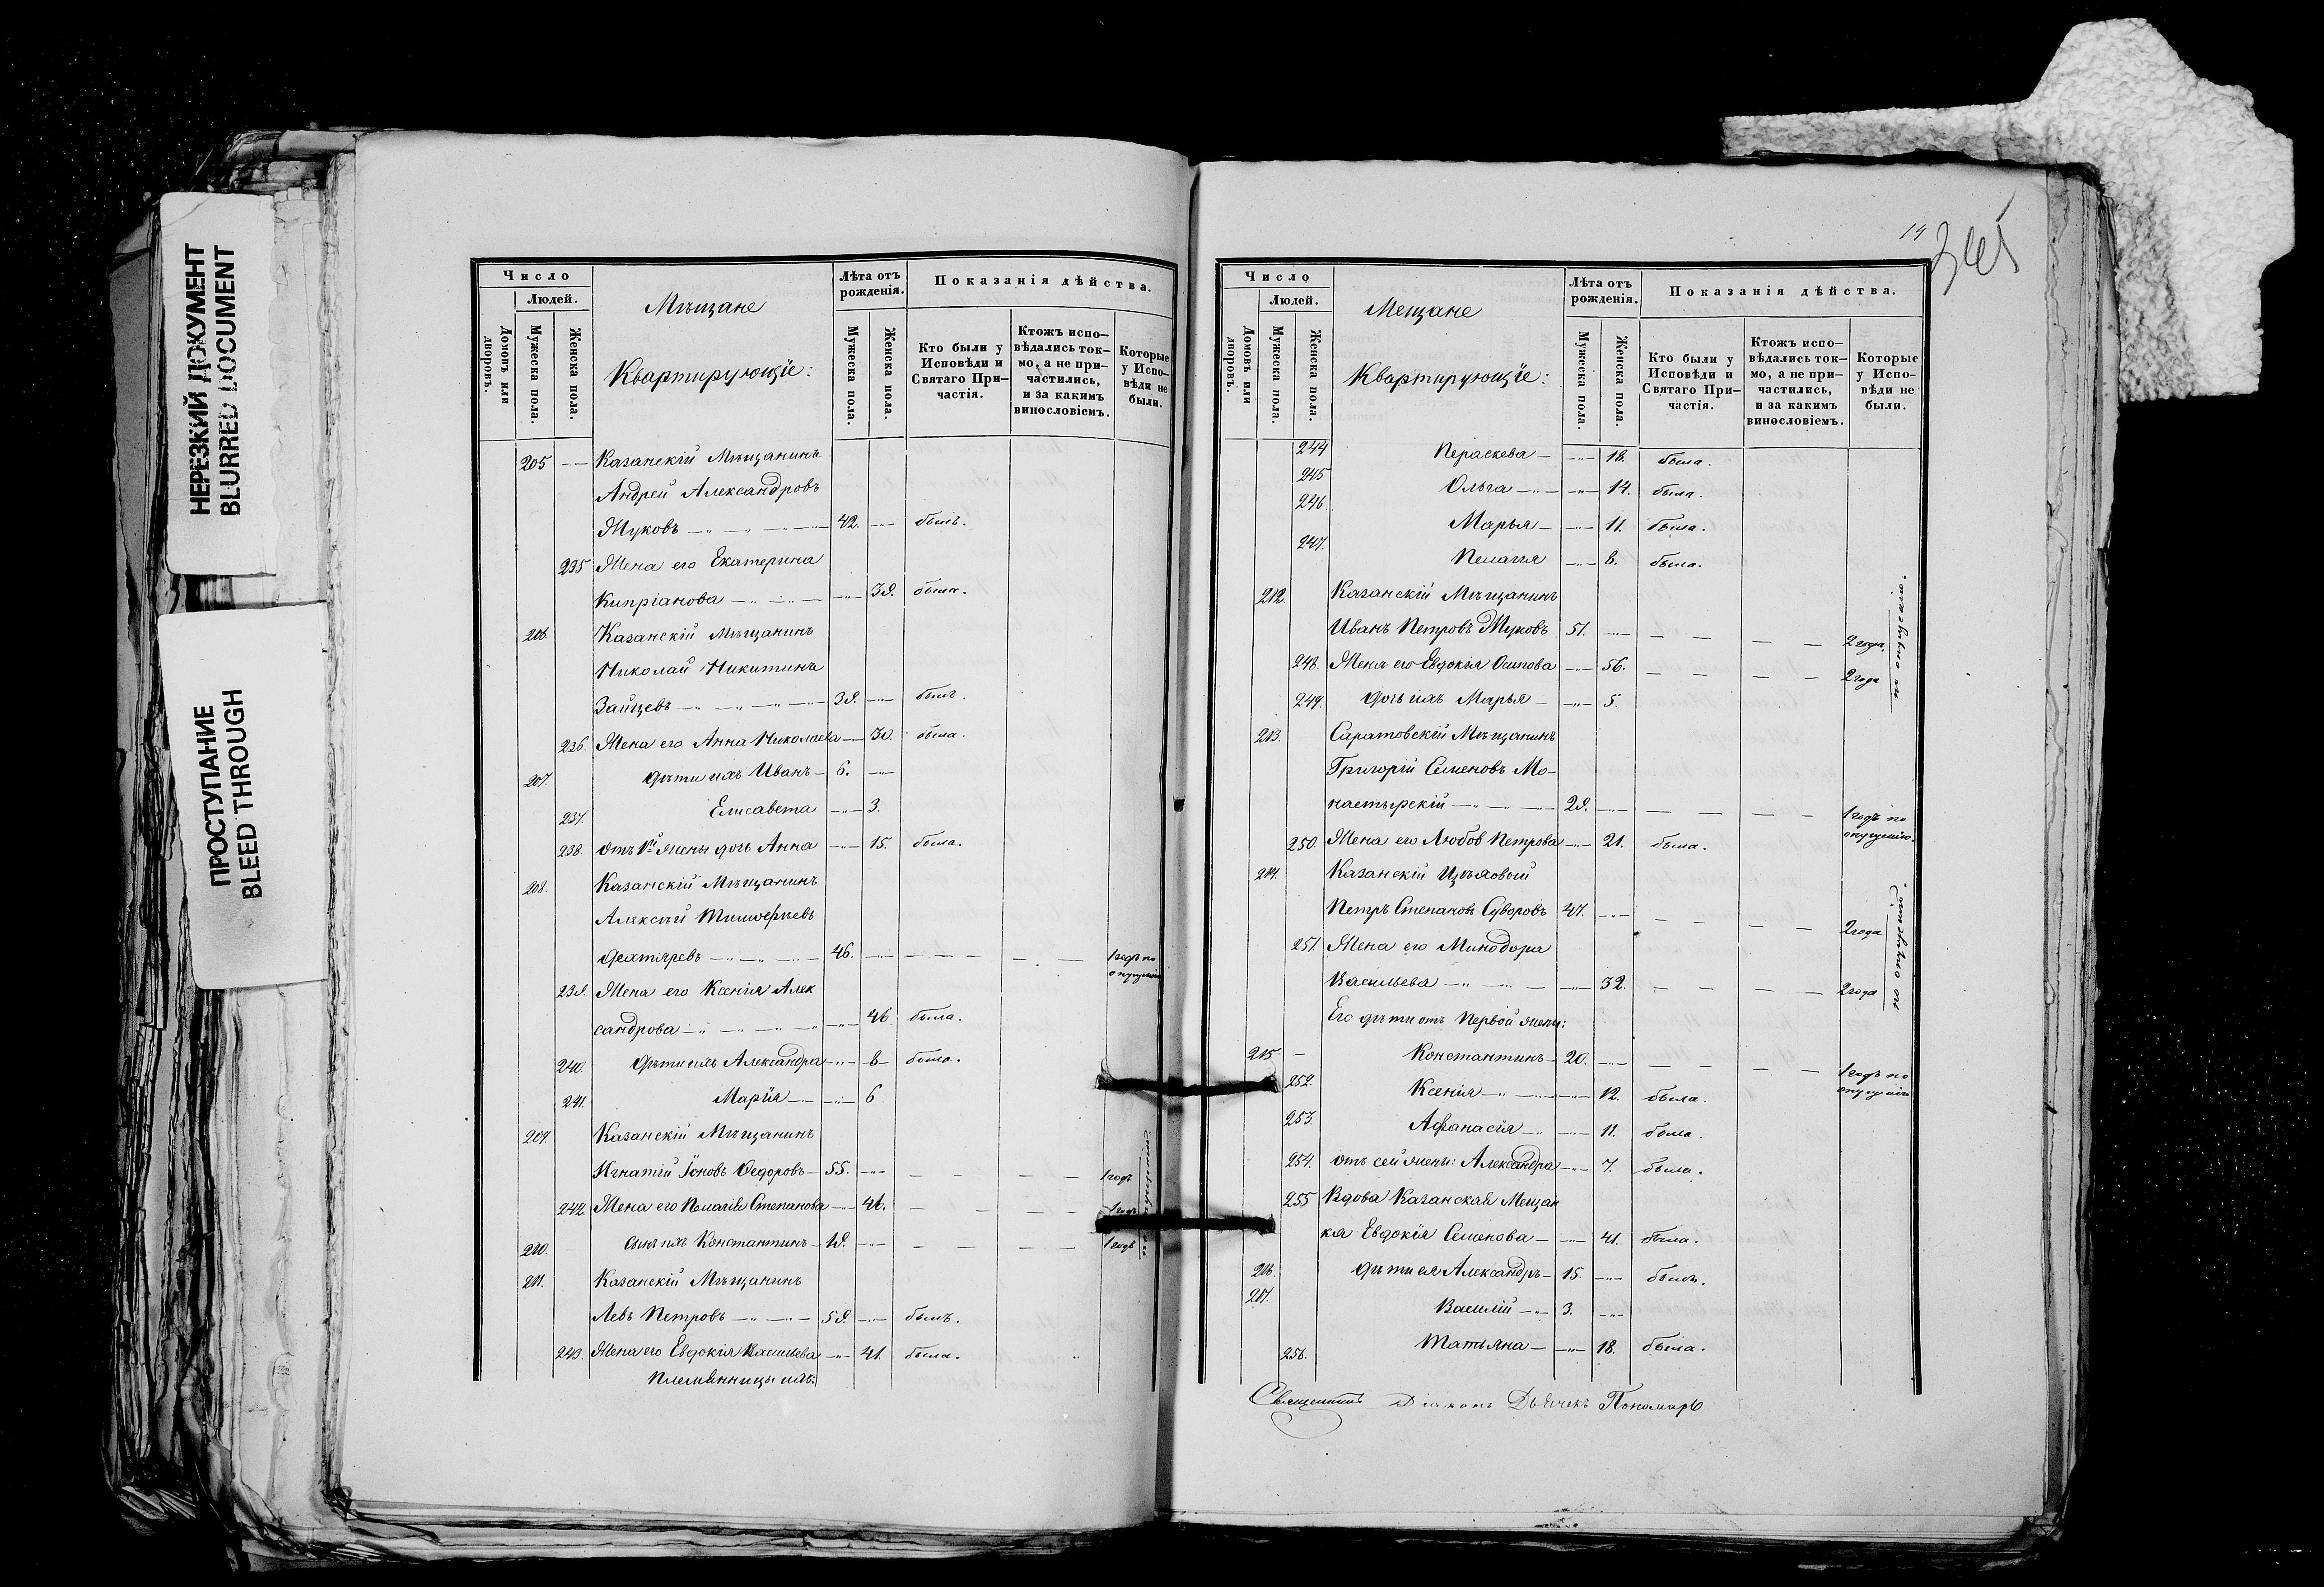 НЕРЕЗКИЙ ДОКУМЕНТ
BLURRED DOCUMENT
ПРОСТУПАНИЕ
BLEED THROUGH
Число
Людей.
Домовъ или дворовъ.
Мужеска пола.
Женска пола.
Мѣщане
Квартирующіе:
Лѣта отъ рожденія.
Мужеска пола.
Женска пола.
Показанія дѣйства.
Кто были у Исповѣди и Святаго При-частія.
Ктожъ испо-вѣдались ток-мо, а не при-частились, и за какимъ винословіемъ.
Которые у Испо-вѣди не были.
205 Казанскій Мѣщанинъ
Андрей Александровъ
Жуковъ 42. былъ.
235 Жена его Екатерина
Кипріанова 39. была.
206. Казанскій Мѣщанинъ
Николай Никитинъ
Зайцевъ 39. былъ.
236. Жена его Анна Николаева 30. была.
207. Дѣти ихъ Иванъ 6.
237. Елисавета 3.
238. отъ 1й жены дочь Анна 15. была.
208. Казанскій Мѣщанинъ
Алексѣй
Дехтяревъ 46. 1 годъ по опущенію
239. Жена его Ксенія Алек
сандрова 46 была.
240. Дѣти ихъ Александра 8 была.
241. Марія 6
209. Казанскій Мѣщанинъ
Игнатій Іоновъ Ѳедоровъ 55. 1 годъ
242. Жена его Пелагія Степанова 46. 1 годъ
210. Сынъ ихъ Константинъ 19. 1 годъ
211. Казанскій Мѣщанинъ
Левъ Петровъ 59. былъ.
243. Жена его Евдокія Васильева 41. была.
Племянницы ихъ:
14
345
Число
Людей.
Домовъ или дворовъ.
Мужеска пола.
Женска пола.
Мещане
Квартирующіе:
Лѣта отъ рожденія.
Мужеска пола.
Женска пола.
Показанія дѣйства.
Кто были у Исповѣди и Святаго При-частія.
Ктожъ испо-вѣдались ток-мо, а не при-частились, и за какимъ винословіемъ.
Которые у Испо-вѣди не были.
244 Пераскева 18. была.
245 Ольга 14. была.
246. Марья 11. была.
247. Пелагія 8. была.
212. Казанскій Мѣщанинъ
Иванъ Петровъ Жуковъ 51. 2 года,
248. Жена его Евдокія Осипова 56. 2 года
по опущенію.
249. дочь ихъ Марья 5.
213. Саратовскій Мѣщанинъ
Григорій Семеновъ Мо-
настырскій 29. 1 годъ по опущенію.
250. Жена его Любовь Петрова 21. была.
214. Казанскій Цѣховый
Петръ Степановъ Суворовъ 47. 2 года
251. Жена его Минодора
Васильева 32. 2 года
по опущенію.
Его дѣти отъ Первой жены:
215 Константинъ 20. 1 годъ по опущенію
252. Ксенія 12. была.
253. Афанасія 11. была.
254. отъ сей жены: Александра 7. была.
255 Вдова Казанская Мещан
ка Евдокія Семенова 41. была.
216. Дѣти ея Александръ 15. былъ.
217. Василій 3.
256. Татьяна 18. была.
Священникъ Діаконъ Дьячекъ Пономарь